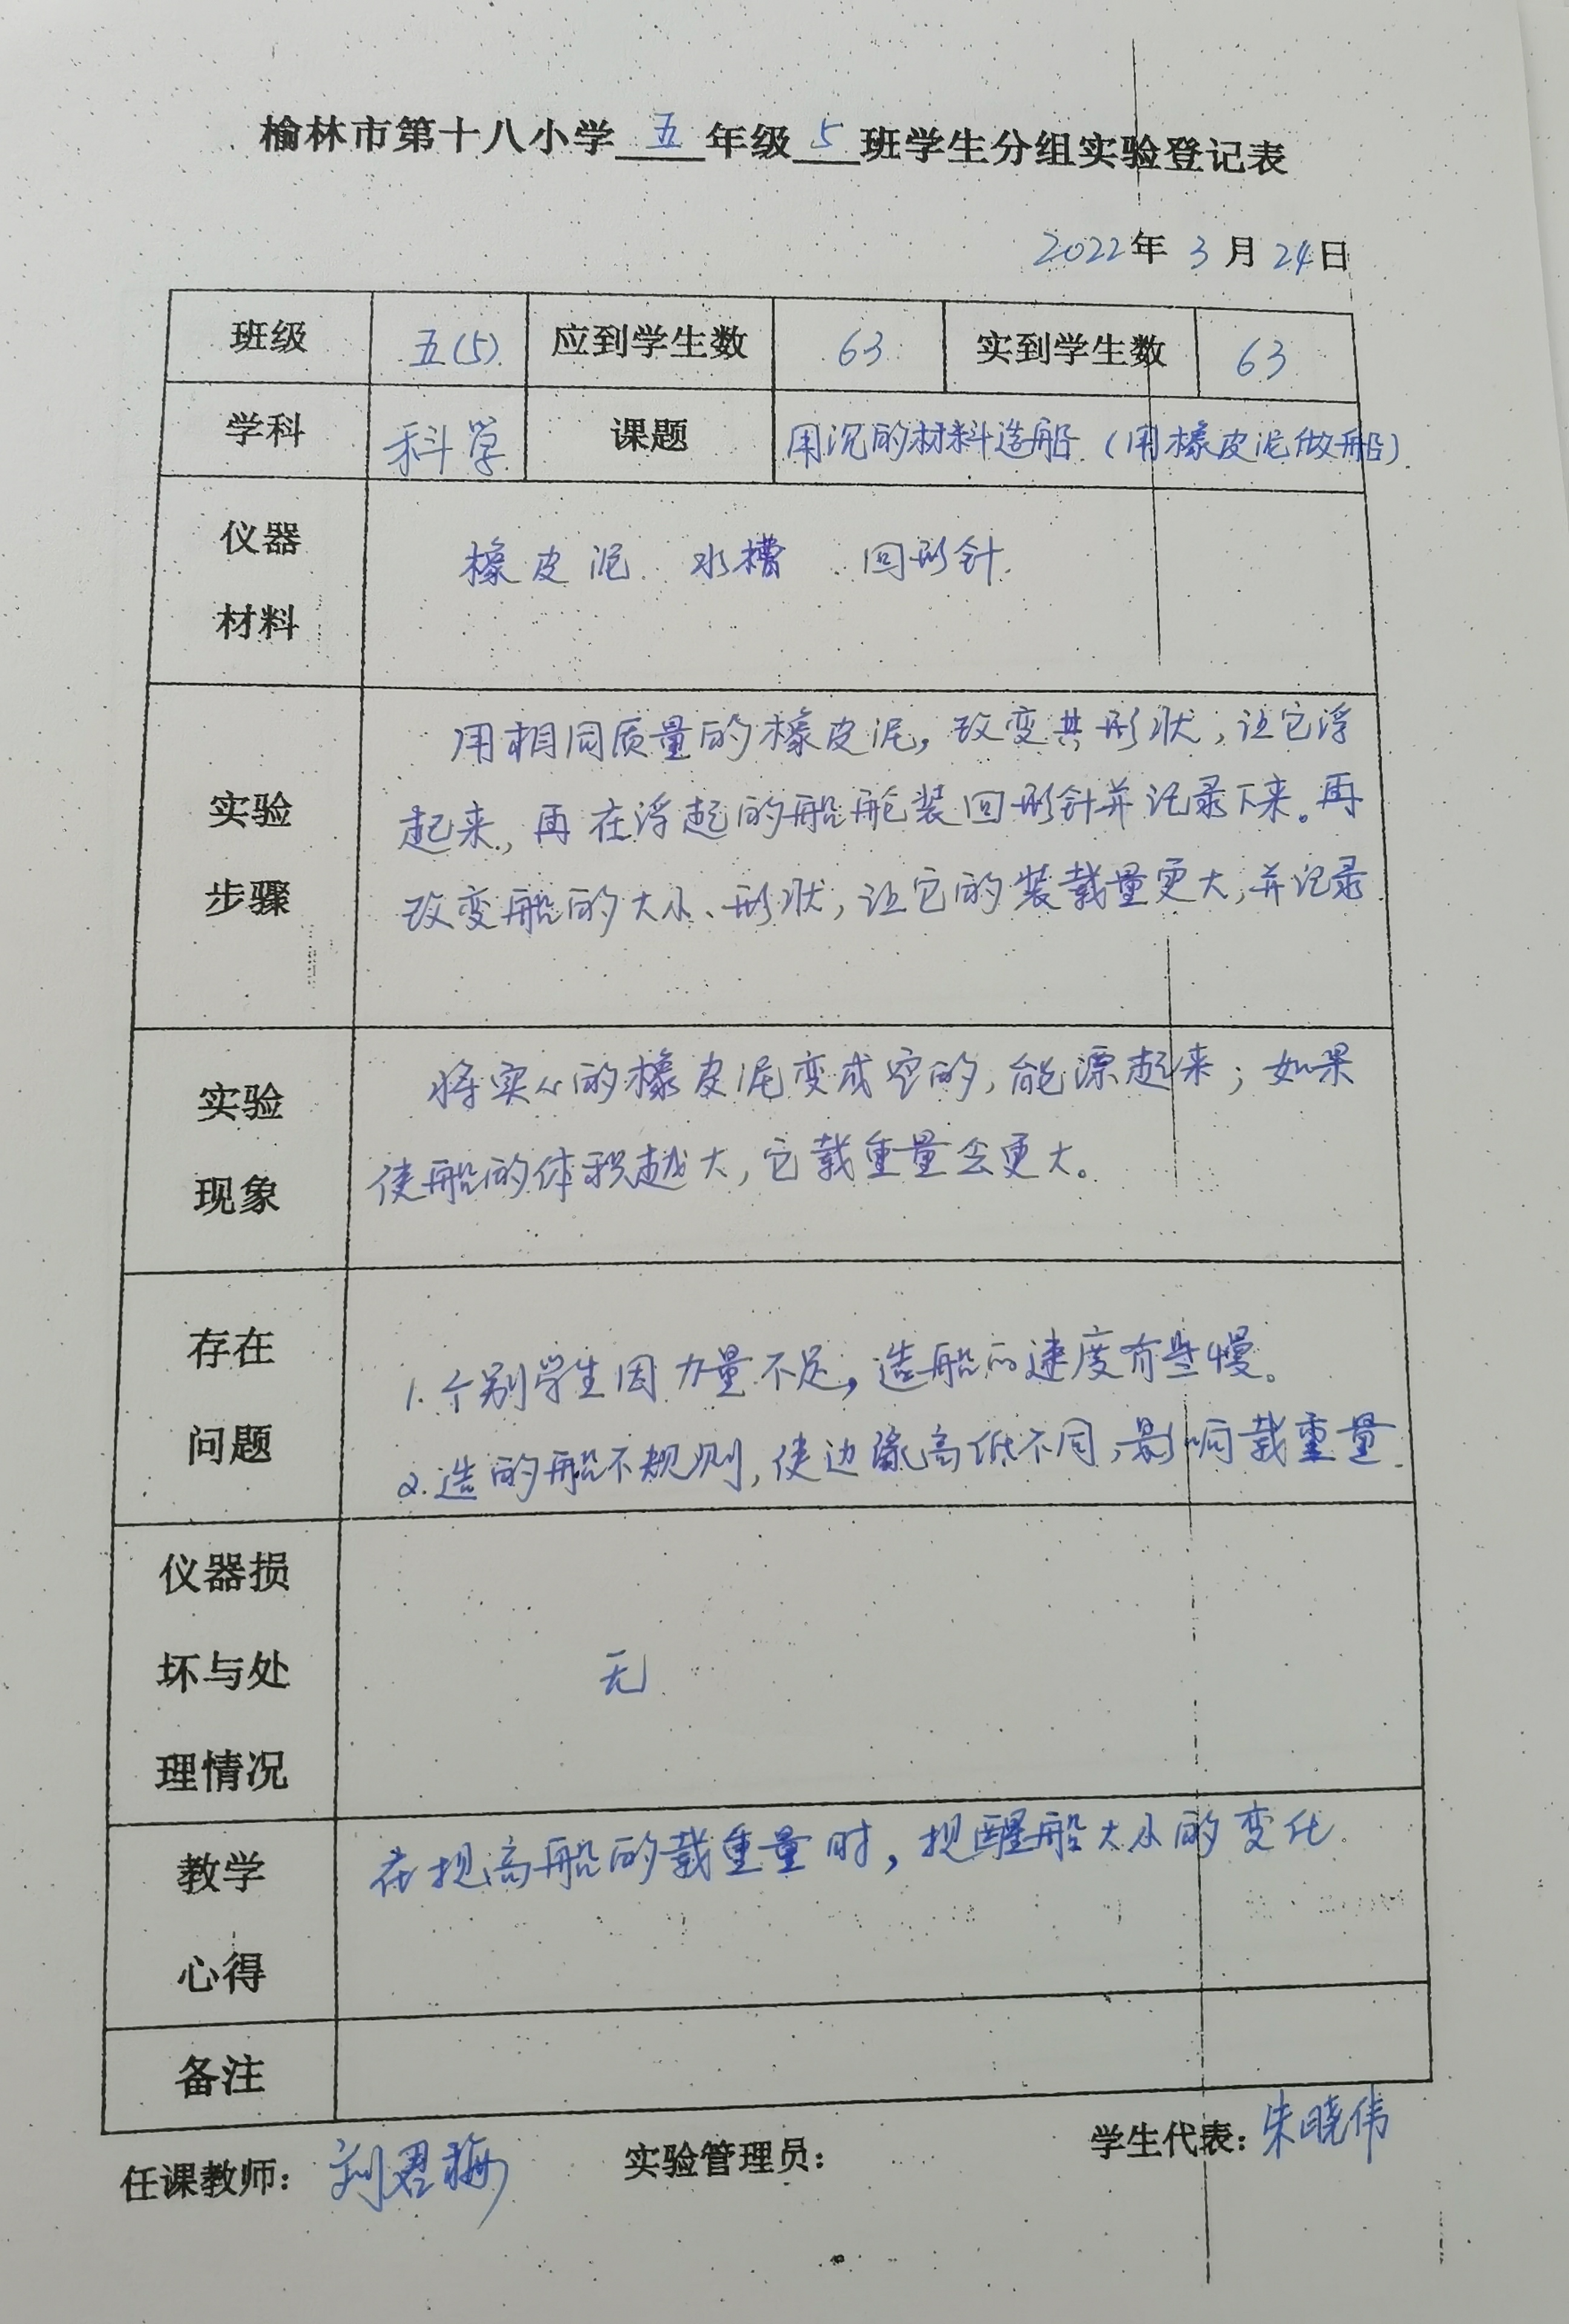 榆林市第十八小学 五 年级 5 班学生分组实验登记表
2022年 3 月 24日
班级 五(5) 应到学生数 63 实到学生数 63
学科 科学 课题 用沉的材料造船（用橡皮泥做船）
仪器
材料
橡皮泥 水槽 回形针
实验
步骤
用相同质量的橡皮泥，改变其形状，让它浮
起来，再在浮起的船舱装回形针并记录下来。再
改变船的大小、形状，让它的装载量更大，并记录
实验
现象
将实心的橡皮泥变成空的，能漂起来；如果
使船的体积越大，它载重量会更大。
存在
问题
1.个别学生因力量不足，造船的速度有些慢。
2.造的船不规则，使边缘高低不同，影响载重量.
仪器损
坏与处
理情况
无
教学
心得
在提高船的载重量时，提醒船大小的变化
备注
任课教师：刘君梅 实验管理员： 学生代表：朱晓伟